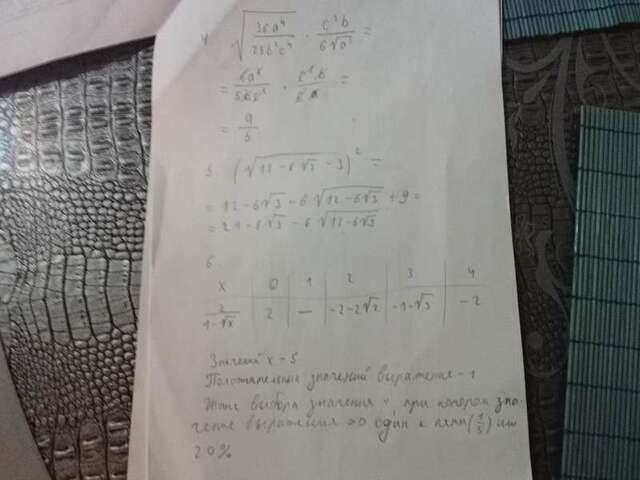 4. √(36a⁴ / 25b²c⁴) · c²b / 6√a² =
= 6a² / 5bc² · c²b / 6a =
= a / 5
5. (√(12 - 6√3) - 3)² =
= 12 - 6√3 - 6√(12 - 6√3) + 9 =
= 21 - 6√3 - 6√(12 - 6√3)
6.
x | 0 | 1 | 2 | 3 | 4
2 / 1-√x | 2 | — | -2-2√2 | -1-√3 | -2
Значений x - 5
Положительных значений выражения - 1
выбора значения x при котором зна-
чение выражения >0 один к пяти (1/5) или
20%